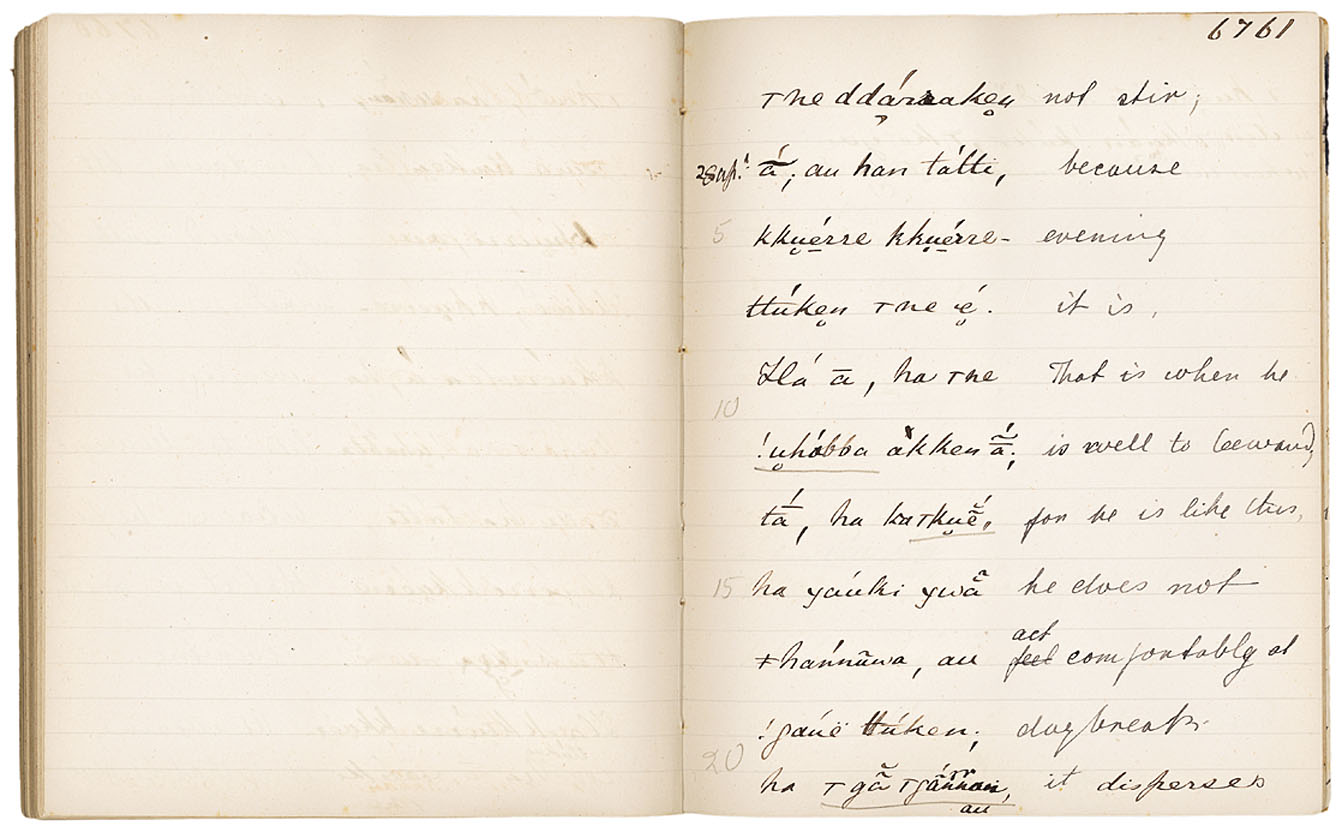 6761
ⲧne ddárrakeṋ not stir;
28 Apl. ā́; au han tátti, because
5 kku̯érre kku̯érre- evening
ttúkeṋ ⲧne e̯. it is.
Há ā, ha ⲧne That is when he
10
!u̯hóbba ákken ā̃́; is well to leeward,
tā́, ha kaⲧku̯ẽ́, for he is like this,
15 ha yáuki ywã he does not
act
ǂhánnũwa, au feel comfortably at
!gáuë ttúken; daybreak
20
ha ⲧgã ⲧgā́nnoin, it disperses
au